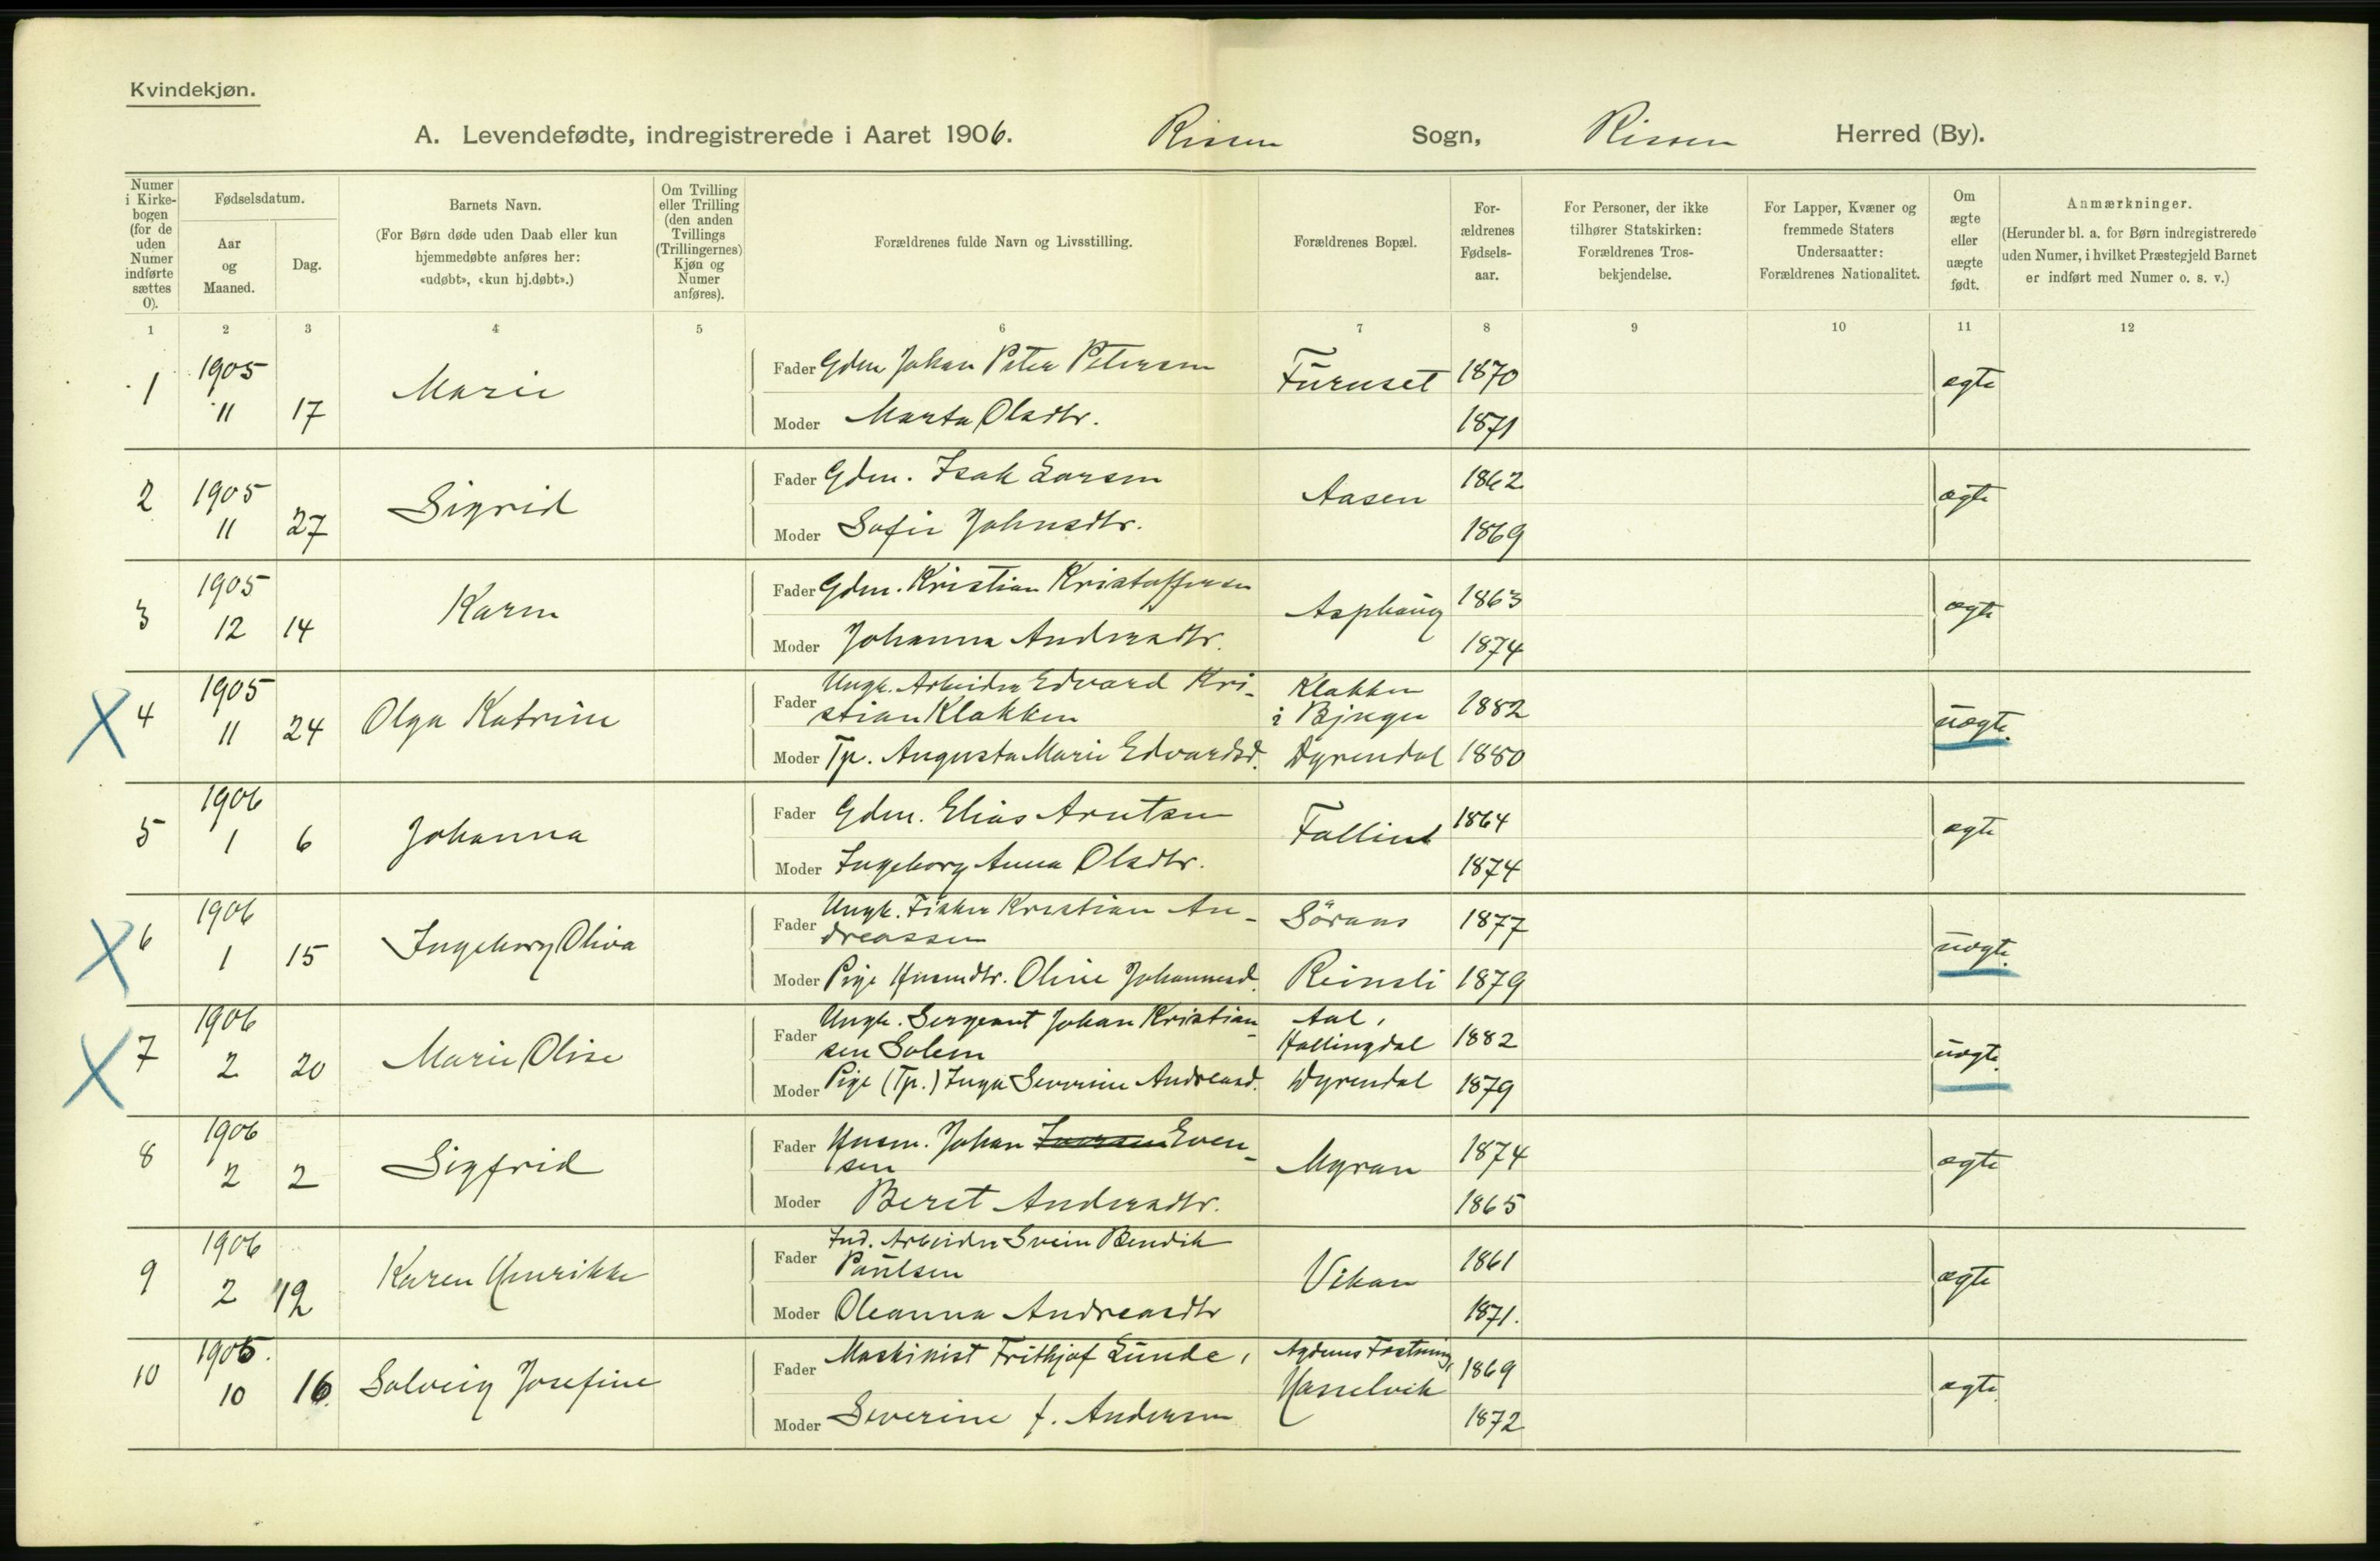 Kvindekjøn.
A. Levendefødte, indregistrerede i Aaret 1906. Rissen Sogn, Rissen Herred (By).
Numer i Kirke-bogen (for de uden Numer indførte sættes 0).
Fødselsdatum.
Aar og Maaned.
Dag.
Barnets Navn.
(For Børn døde uden Daab eller kun hjemmedøbte anføres her: «udøbt», «kun hj.døbt».)
Om Tvilling eller Trilling (den anden Tvillings (Trillingernes) Kjøn og Numer anføres).
Forældrenes fulde Navn og Livsstilling.
Forældrenes Bopæl.
For-ældrenes Fødsels-aar.
For Personer, der ikke tilhører Statskirken: Forældrenes Tros-bekjendelse.
For Lapper, Kvæner og fremmede Staters Undersaatter: Forældrenes Nationalitet.
Om ægte eller uægte født.
Anmærkninger.
(Herunder bl. a. for Børn indregistrerede uden Numer, i hvilket Præstegjeld Barnet er indført med Numer o. s. v.)
1 2 3 4 5 6 7 8 9 10 11 12
1 1905 11 17 Marie Fader Gdm Johan Peter Petersen Furuset 1870 ægte
Moder Marta Olsdtr. 1871
2 1905 11 27 Sigrid Fader Gdm. Isak Larsen Aasen 1862 ægte
Moder Sofie Johnsdtr. 1869
3 1905 12 14 Karen Fader Gdm. Kristian Kristoffersen Asphaug 1863 ægte
Moder Johanna Andersdtr. 1874
4 1905 11 24 Olga Katrine Fader Ungk. Arbeider Edvard Kri-
stian Klakken Klakken i Bjugn 1882 uægte
Moder Tp. Augusta Marie Edvardsd. Dyrendal 1880
5 1906 1 6 Johanna Fader Gdm. Elias Arntsen 1864 ægte
Moder Ingeborg Anna Olsdtr. 1874
6 1906 1 15 Ingeborg Oliva Fader Ungk. Fisker Kristian An-
dreassen 1877 uægte
Moder Pige Husmdtr. Oline Johannesd. Reinsli 1879
7 1906 2 20 Marie Olise Fader Ungk. Sergeant Johan Kristian-
sen Solem Aal, Hallingdal 1882 uægte
Moder Pige (Tp.) Inga Severine Andreasd. Dyrendal 1879
8 1906 2 2 Sigfrid Fader Husm. Johan Even-
sen Myran 1874 ægte
Moder Beret Andersdtr. 1865
9 1906 2 12 Karen Henrikke Fader Ind. Arbeider Svein Bendik
Paulsen Vikan 1861 ægte
Moder Oleanna Andreasdtr 1871.
10 10 16. Solveig Josefine Fader Maskinist Frithjof Lunde, Agdenes Fæstning, Hasselvik 1869 ægte
Moder Severine f. Andersen 1872